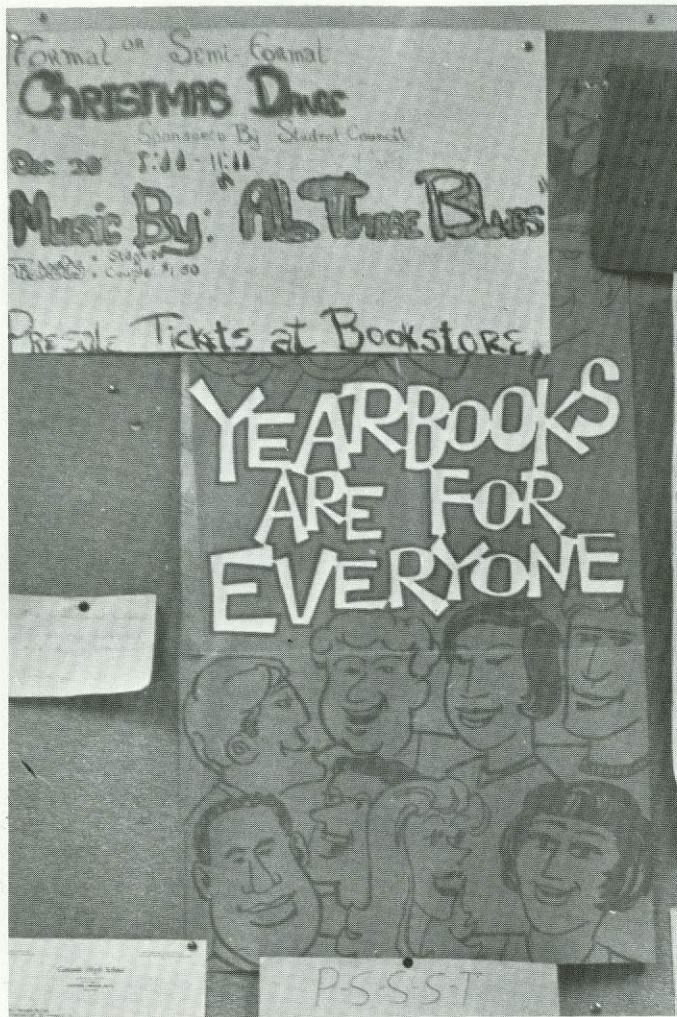 Formal or Semi-Formal
CHRISTMAS DANCE
Sponsored By Student Council
Dec. 20 8:00 - 11:00
MUSIC BY: "ALL THOSE BLUES"
Couple $1.50
PRESALE TICKETS at BOOKSTORE
YEARBOOKS
ARE FOR
EVERYONE
High School
P-S-S-S-T